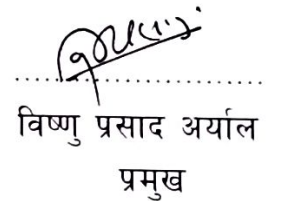 ..............................
विष्णु प्रसाद अर्याल
प्रमुख